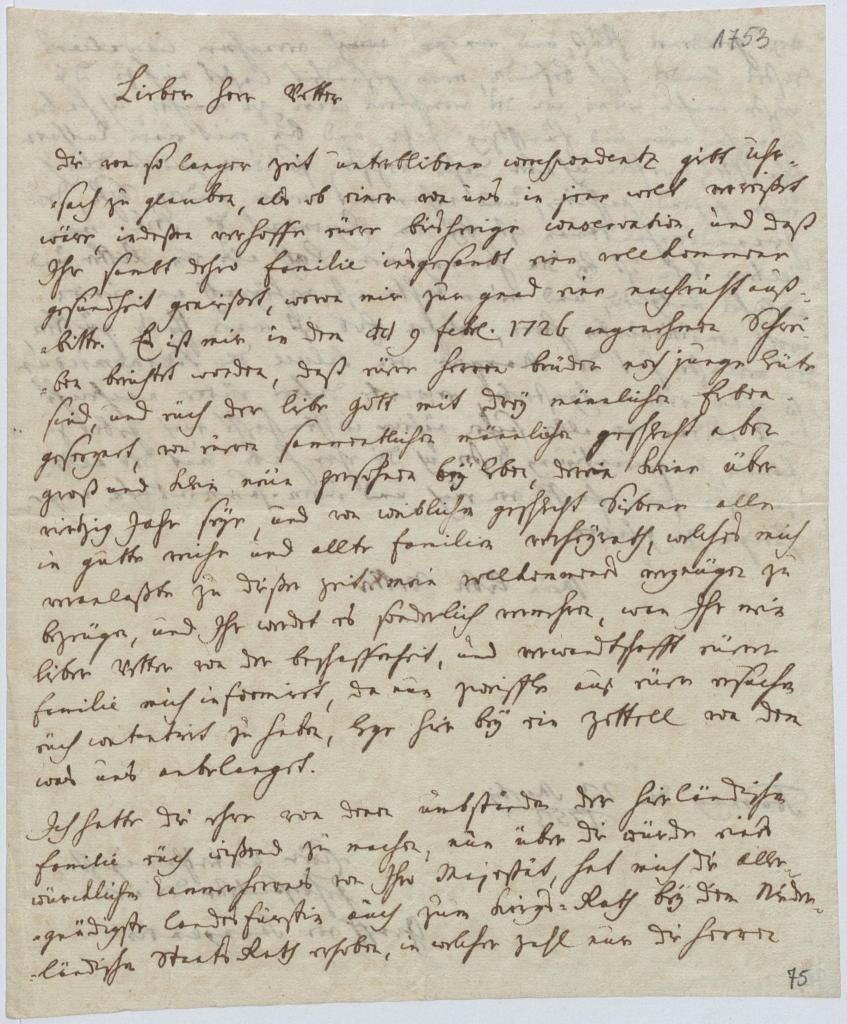 1753
Lieber Herr Vetter
die von so langer Zeit unterblibene correspondentz gibt Uhr-
sach zu glauben, als ob einer von uns in jene welt verreißet
wäre, indeßen verhoffe eüere bisherige conservation, und daß
Ihr sambt dehro familie insgesambt eine vollkommene
gesundheit genießet, wovon mir zur gnad eine nachricht auß-
bitte. Es ist mir in dem dd 9 febr. 1726 angenehmen Schrei-
ben berichtet worden, daß eüere Herren brüder noch junge Leüte
sind, und eüch der liebe Gott mit drey männlichen Erben
gesegnet, von eüerem sammentlichen männlichen geschlecht aber
groß und klein neün persohnen bey leben, derein keiner über
viertzig Jahr seye, und von weiblichem geschlecht Siebene alle
in gutte reiche und allte familien verheyrath, welches mich
veranlaßte zu dießer zeit mein vollkommenes vergnügen zu
bezeügen, und Ihr werdet es sonderlich vermehren, wan Ihr mein
lieber Vetter von der beschaffenheit, und verwandtschafft eüerer
familie mich informiret, da nun zweiffle aus eüer ersuchen
eüch contentirt zu haben, lege hier bey ein zettell von dem
was uns anbelanget.
Ich hatte die ehre von denen umbständen der hierländischen
familie eüch wißend zu machen, nun über die würde eines
würcklichen Cammerherrens von Ihro Majestät, hat mich die aller-
gnädigste landesfürstin auch zum kriegs-Rath bey dem Nider-
ländischen Staats Rath erhoben, in welcher zahl nur die Herren
75